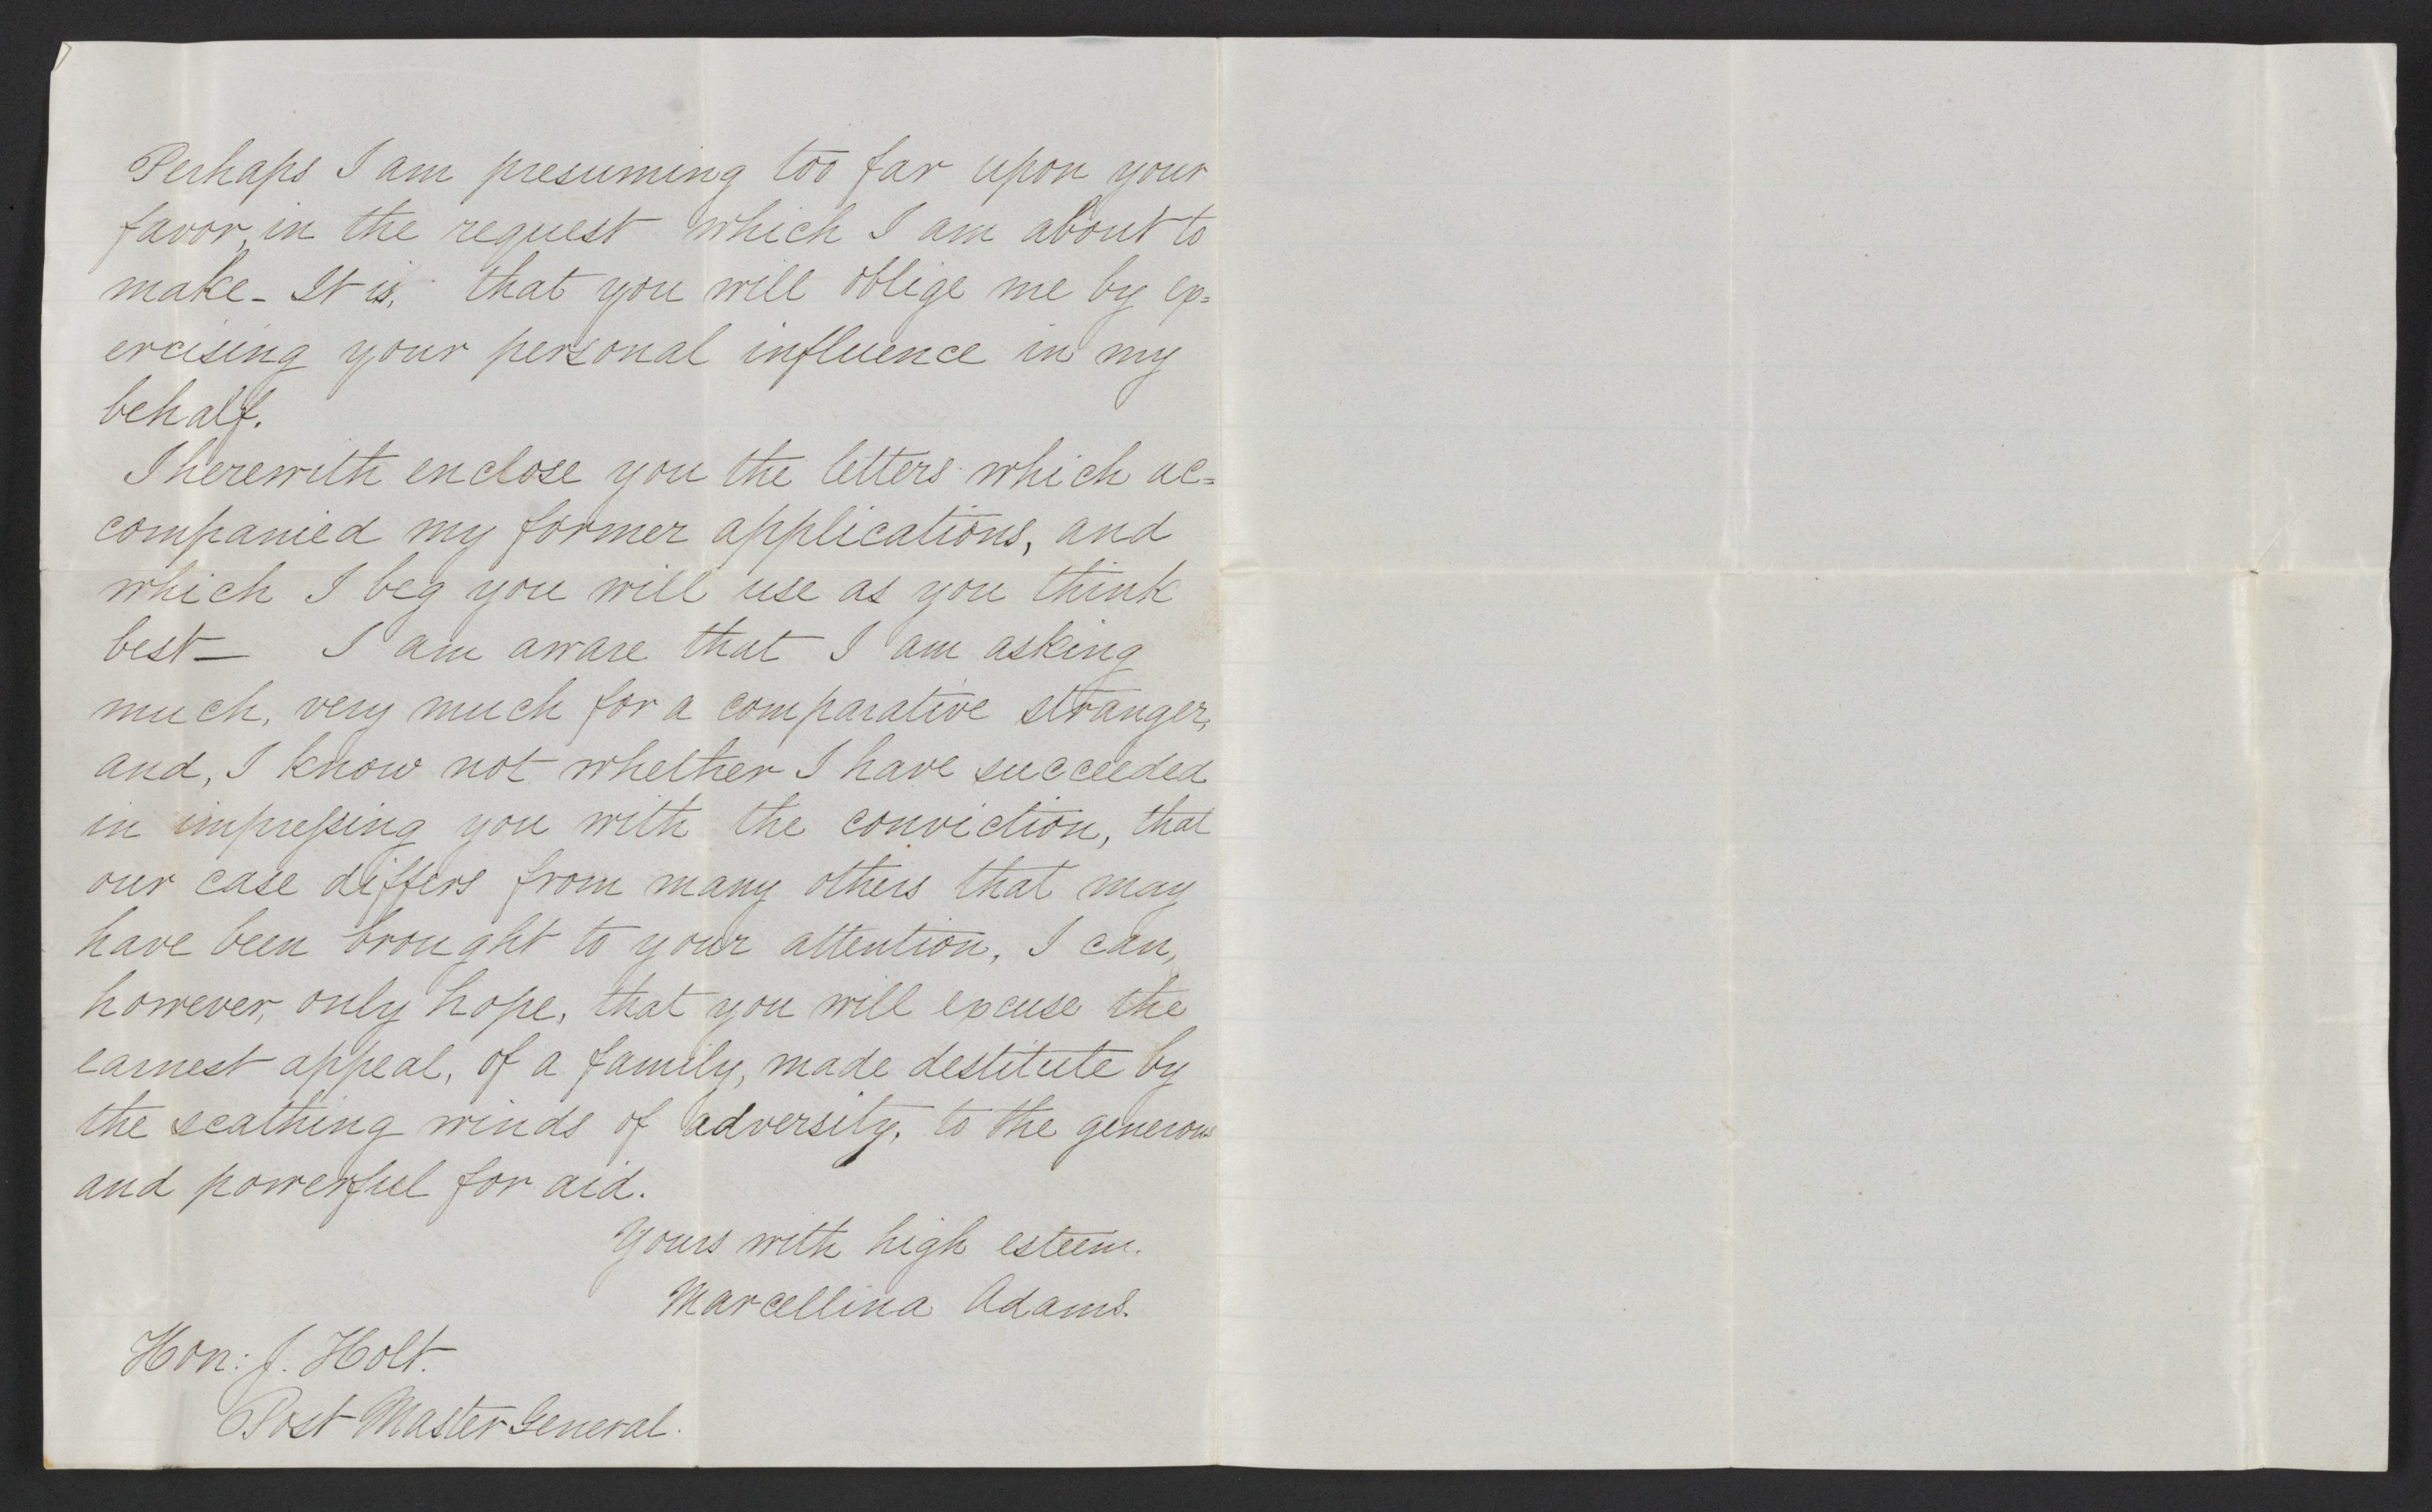 Perhaps I am presuming too far upon your
favor, in the request which I am about to
make - It is, that you will oblige me by ex=
ercising your personal influence in my
behalf.
I herewith enclose you the letters which ac=
companied my former applications, and
which I beg you will use as you think
best - I am aware that I am asking
much, very much for a comparative stranger,
and, I know not whether I have succeeded
in impressing you with the conviction, that
our case differs from many others that may
have been brought to your attention, I can,
however, only hope, that you will excuse the
earnest appeal, of a family, made destitute by
the scathing winds of adversity, to the generous
and powerful for aid.
Yours with high esteem.
Marcellina Adams.
Hon: J. Holt.
Post Master General.